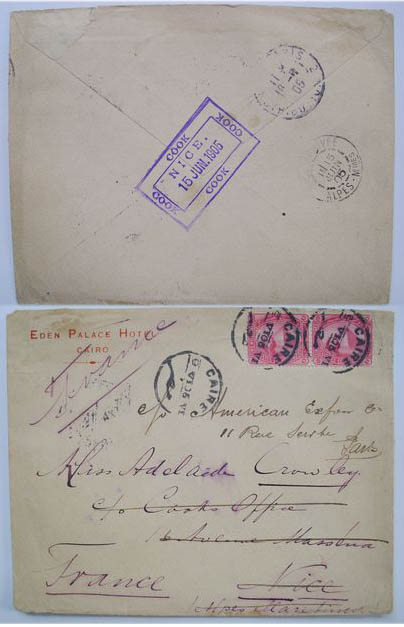 COOK COOK
NICE.
15 JUN.1905
COOK COOK
PARIS
05
15
JUIN
05
EDEN PALACE HOTEL
CAIRO
France
CAIRE
CAIRE
CAIRE
c/o American Expres Co
11 Rue Scribe
Paris
Miss Adelaide Crowley
c/o Cooks Office
16 Avenue Massena
France Nice
Alpes Maritimes